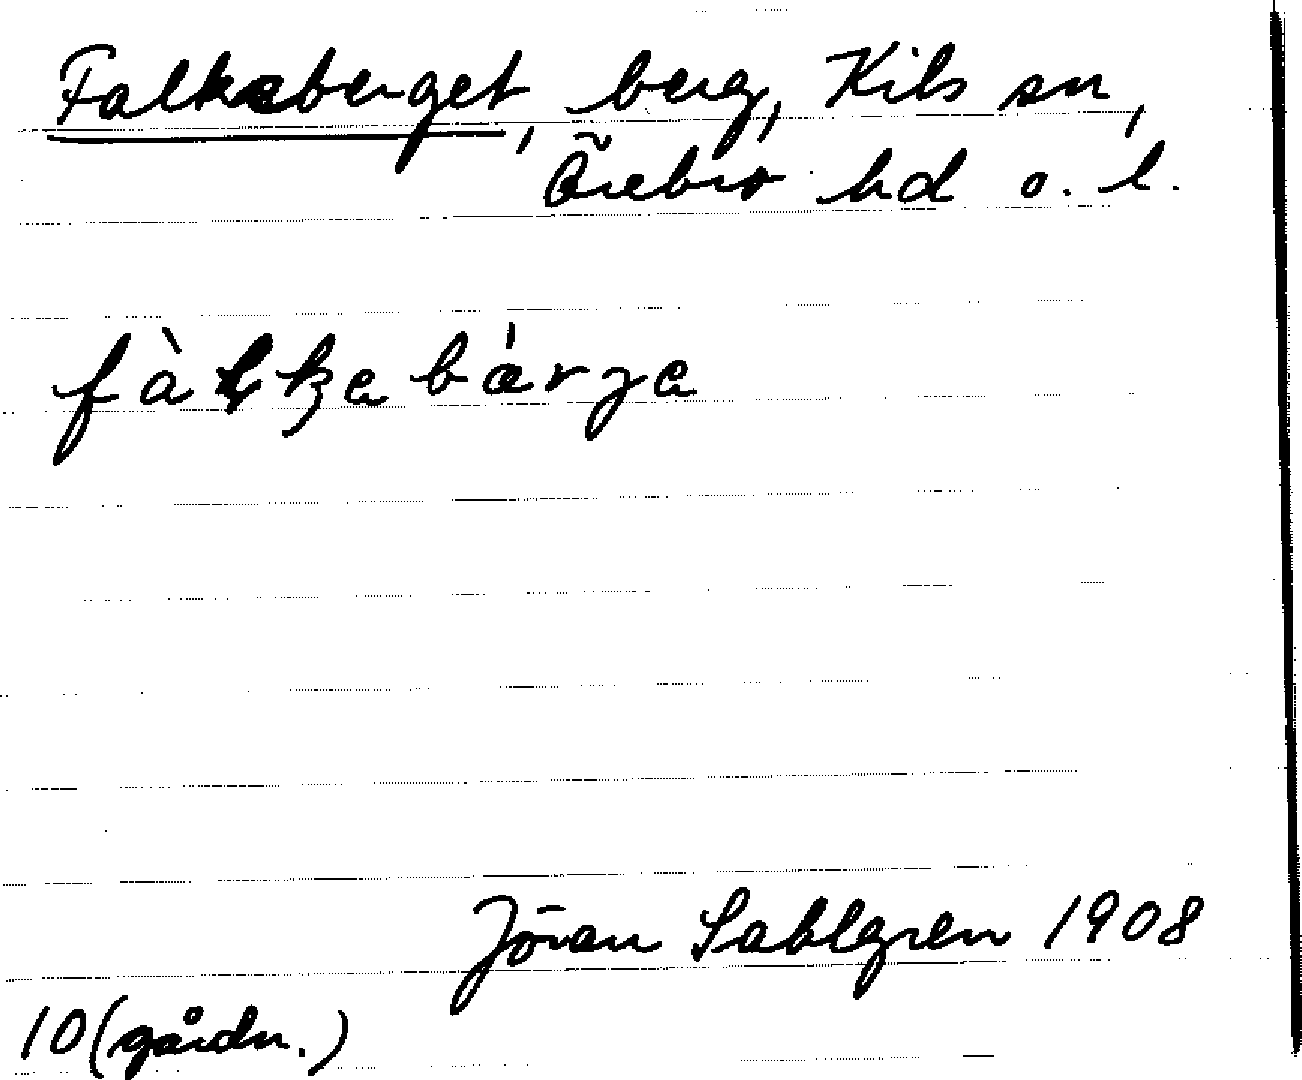 Falkaberget, berg, Kils sn,
Örebro hd o. l.
fàlkabárga
Jöran Sahlgren 1908
10 (gårdn.)